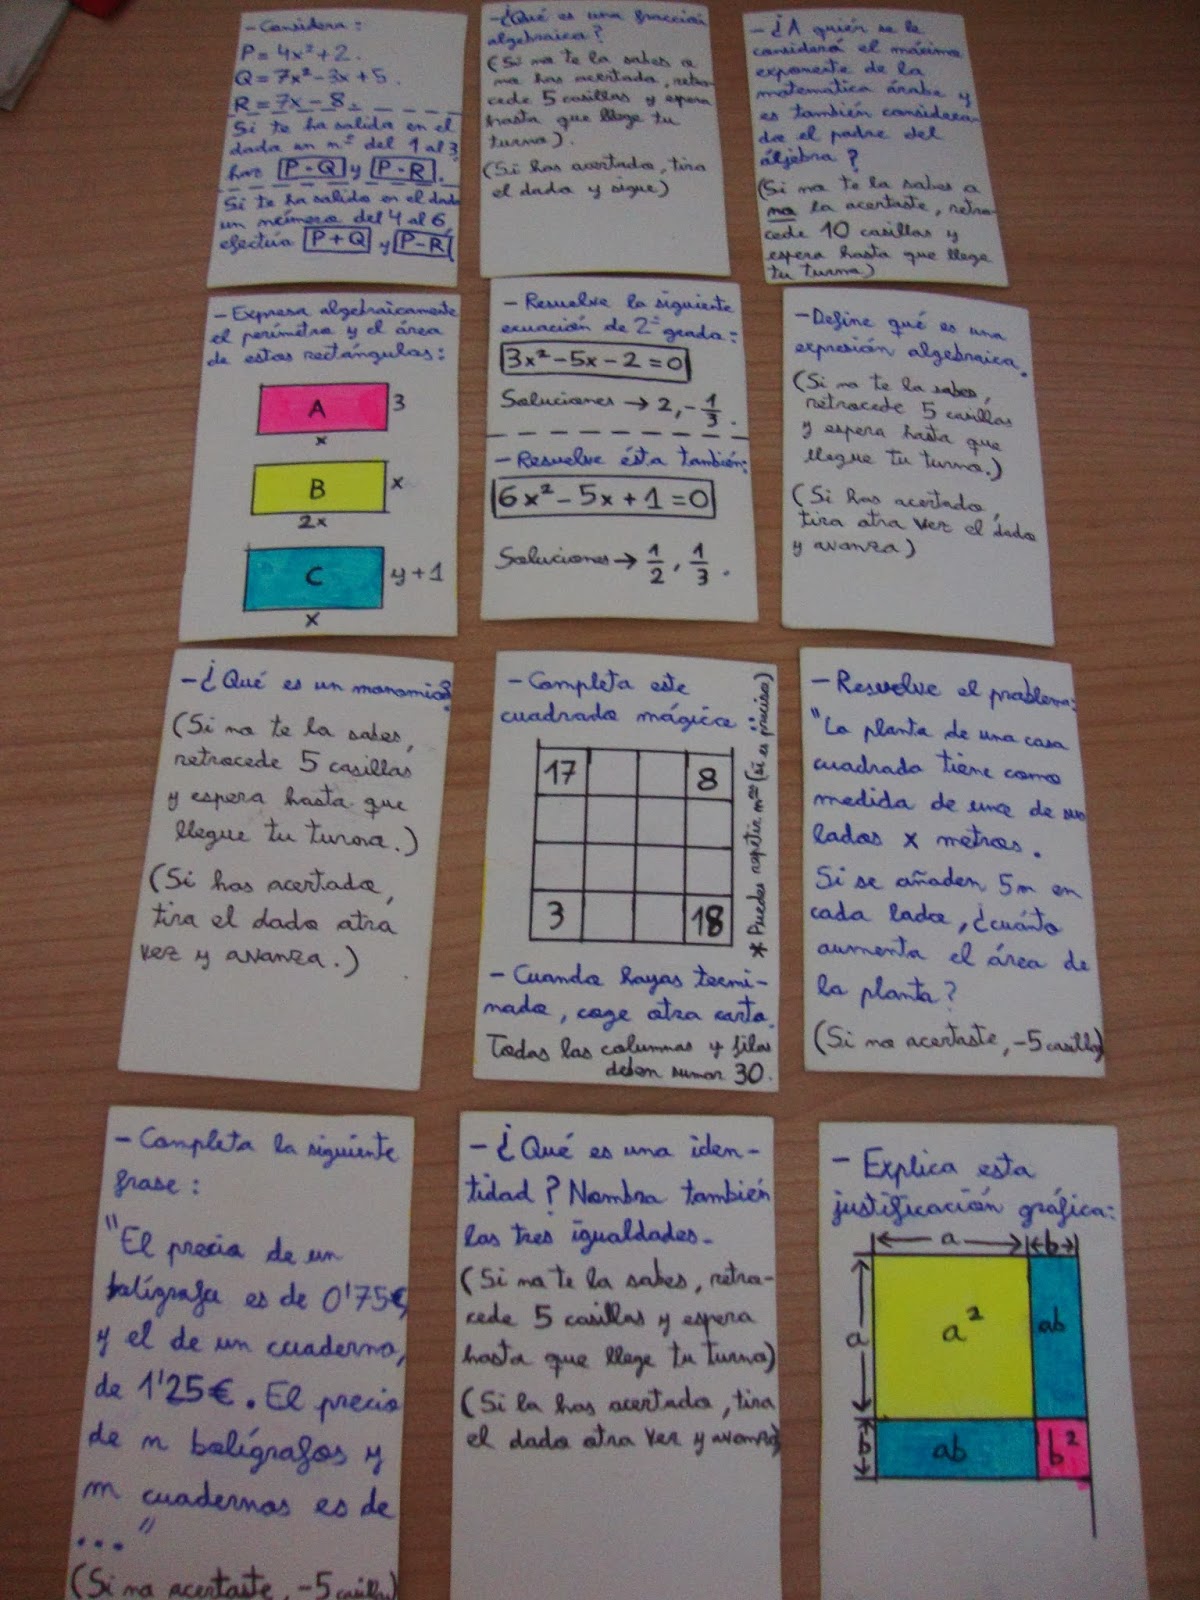 - Considera:
P = 4x² + 2.
Q = 7x² - 3x + 5.
R = 7x - 8.
Si te ha salido en el
dado un nº del 1 al 3,
haz P·Q y P·R.
Si te ha salido en el dado
un número del 4 al 6,
efectúa P+Q y P-R
- ¿Qué es una fracción
algebraica?
(Si no te la sabes o
no has acertado, retro-
cede 5 casillas y espera
hasta que llege tu
turno).
(Si has acertado, tira
el dado y sigue)
- ¿A quién se le
considera el máximo
exponente de la
matemática árabe y
es también considera-
do el padre del
álgebra?
(Si no te la sabes o
no la acertaste, retro-
cede 10 casillas y
espera hasta que llege
tu turno)
- Expresa algebraicamente
el perímetro y el área
de estos rectángulos:
A 3
x
B x
2x
C y + 1
x
- Resuelve la siguiente
ecuación de 2º grado:
3x² - 5x - 2 = 0
Soluciones → 2, -1/3.
- Resuelve ésta también:
6x² - 5x + 1 = 0
Soluciones → 1/2, 1/3.
- Define qué es una
expresión algebraica.
(Si no te la sabes,
retrocede 5 casillas
y espera hasta que
llegue tu turno.)
(Si has acertado,
tira otra vez el dado
y avanza)
- ¿Qué es un monomio?
(Si no te la sabes,
retrocede 5 casillas
y espera hasta que
llegue tu turno.)
(Si has acertado,
tira el dado otra
vez y avanza.)
- Completa este
cuadrado mágico:
17 8
3 18
* Puedes repetir nºs (si es preciso)
- Cuando hayas termi-
nado, coge otra carta.
Todas las columnas y filas
deben sumar 30.
- Resuelve el problema:
"La planta de una casa
cuadrada tiene como
medida de uno de sus
lados x metros.
Si se añaden 5m en
cada lado, ¿cuánto
aumenta el área de
la planta?
(Si no acertaste, -5 casillas)
- Completa la siguiente
frase:
"El precio de un
bolígrafo es de 0'75€,
y el de un cuaderno,
de 1'25€. El precio
de n bolígrafos y
m cuadernos es de
..."
(Si no acertaste, -5 casillas)
- ¿Qué es una iden-
tidad? Nombra también
las tres igualdades.
(Si no te la sabes, retro-
cede 5 casillas y espera
hasta que llege tu turno)
(Si la has acertado, tira
el dado otra vez y avanza)
- Explica esta
justificación gráfica:
a b
a a² ab
b ab b²